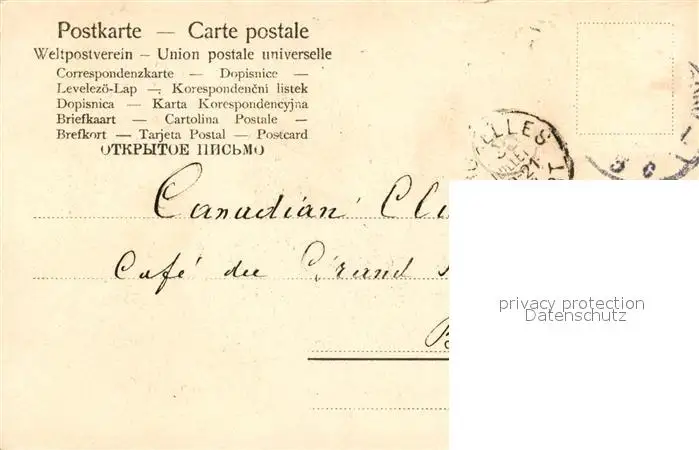 Postkarte — Carte postale
Weltpostverein – Union postale universelle
Correspondenzkarte — Dopisnice —
Levelező-Lap —, Korespondenční listek
Dopisnica — Karta Korespondencyjna
Briefkaart — Cartolina Postale —
Brefkort — Tarjeta Postal — Postcard
ОТКРЫТОЕ ПИСЬМО
Canadian Cl
Café du Grand
privacy protection
Datenschutz